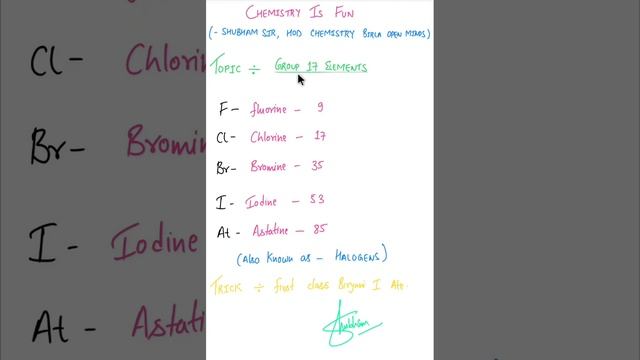 CHEMISTRY IS FUN
(- SHUBHAM SIR, HOD CHEMISTRY BIRLA OPEN MINDS)
TOPIC ÷ GROUP 17 ELEMENTS
F - fluorine - 9
Cl - Chlorine - 17
Br - Bromine - 35
I - Iodine - 53
At - Astatine - 85
(Also Known as - HALOGENS)
TRICK ÷ first class Biryani I Ate.
Shubham
Cl - Chlorin
Br - Bromin
I - Iodine
At - Astati